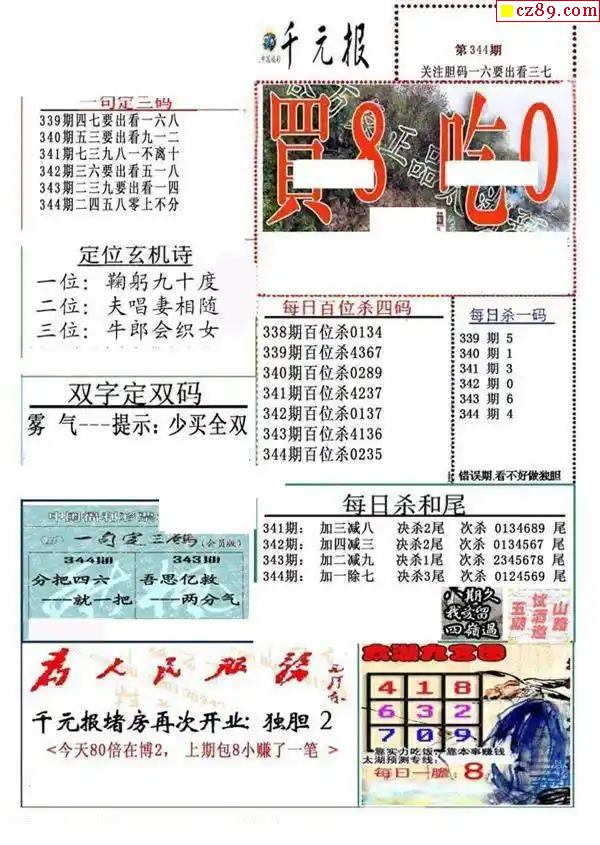 cz89.com
千元报
第344期
关注胆码一六要出看三七
買8吃0
一句定三码
339期四七要出看一六八
340期五三要出看九一二
341期七三九八一不离十
342期三六要出看五一八
343期二三九要出看一四
344期二四五八零上不分
定位玄机诗
一位：鞠躬九十度
二位：夫唱妻相随
三位：牛郎会织女
每日百位杀四码
338期百位杀0134
339期百位杀4367
340期百位杀0289
341期百位杀4237
342期百位杀0137
343期百位杀4136
344期百位杀0235
每日杀一码
339 期 5
340 期 1
341 期 3
342 期 0
343 期 6
344 期 4
错误期,看不好做独胆
双字定双码
雾 气---提示：少买全双
每日杀和尾
341期： 加三减八 决杀2尾 次杀 0134689 尾
342期： 加四减三 决杀2尾 次杀 0134567 尾
343期： 加二减九 决杀1尾 次杀 2345678 尾
344期： 加一除七 决杀3尾 次杀 0124569 尾
中国福利彩票
一句定三码(会员版)
344期 343期
分把四六 吾思亿救
——就一把 ——两分气
八期久
我爱留
四岭过
山路
试酒邀
五期
为人民服务
千元报堵房再次开业：独胆 2
<今天80倍在博2， 上期包8小赚了一笔 >
太湖九宫图
4 1 8
6 3 2
7 0 9
靠实力吃饭，靠本事赚钱
太湖预测专线：
每日一胆：8